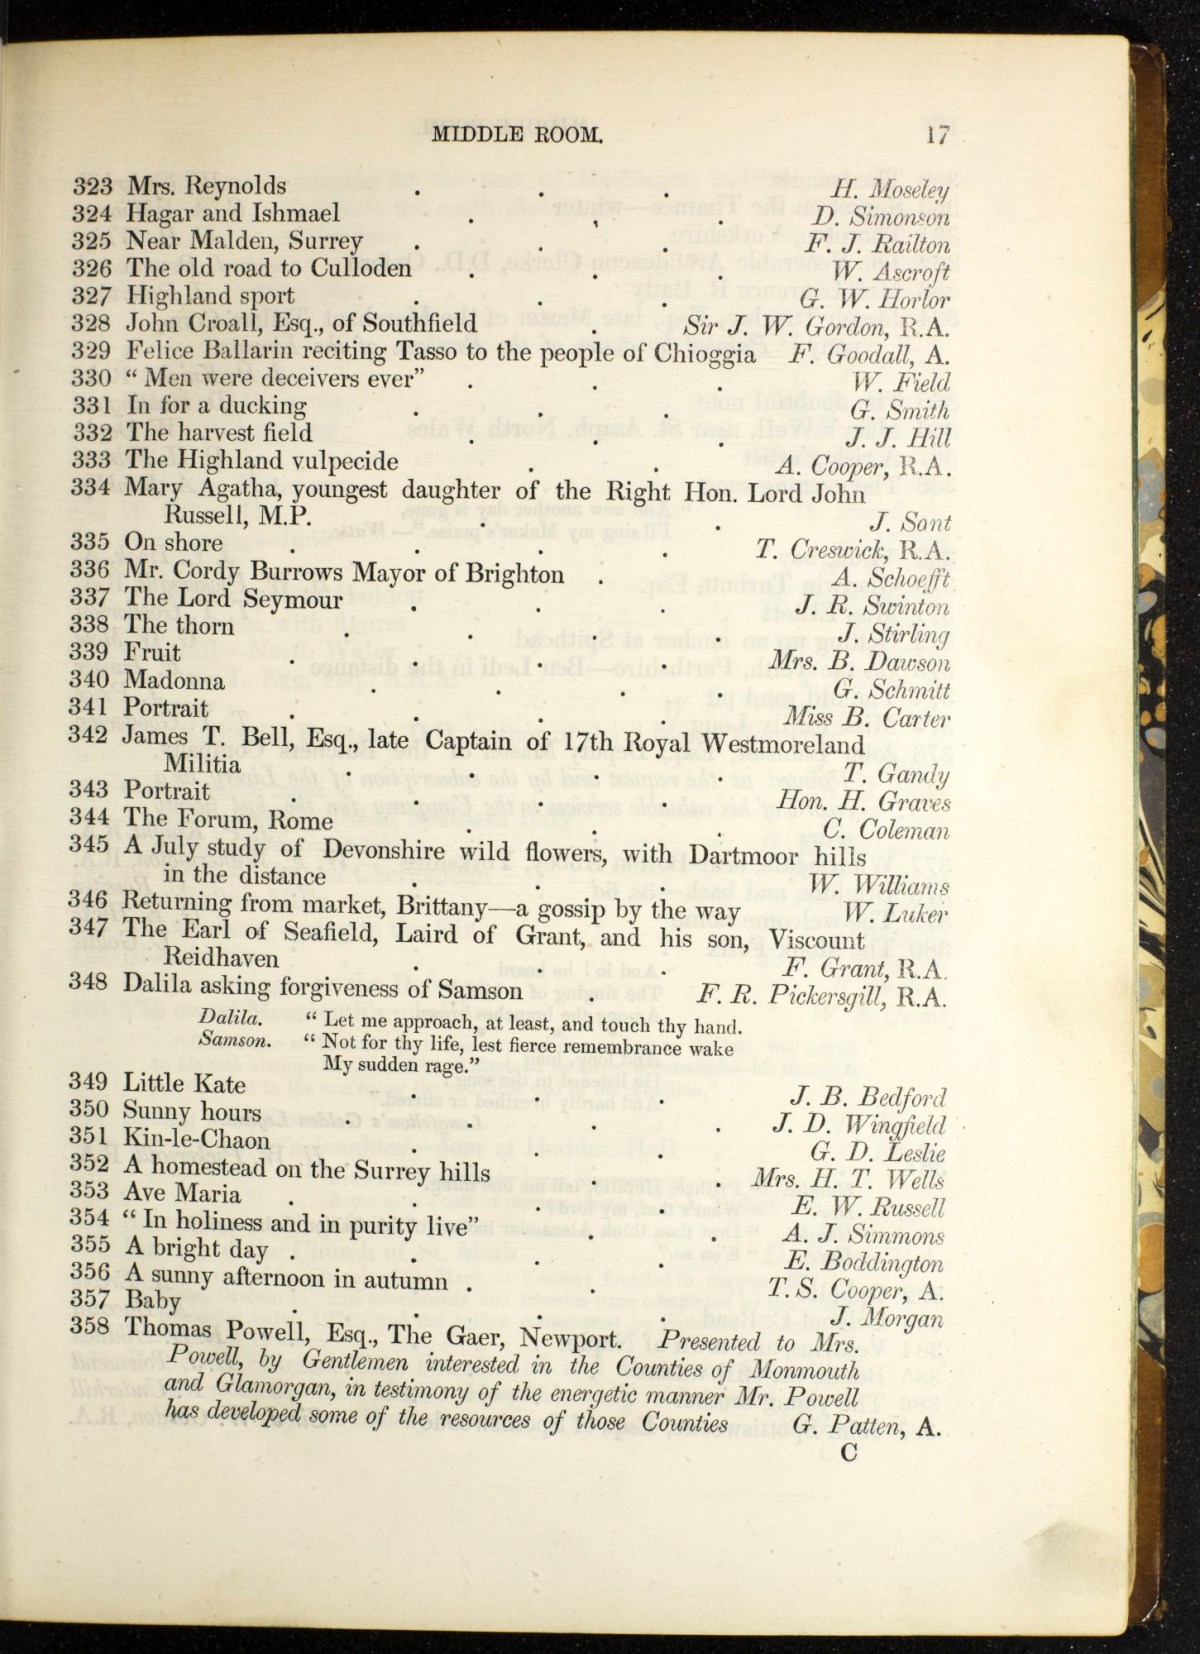 MIDDLE ROOM. 17
323 Mrs. Reynolds . . . H. Moseley
324 Hagar and Ishmael . . . D. Simonson
325 Near Malden, Surrey . . . F. J. Railton
326 The old road to Culloden . . . W. Ascroft
327 Highland sport . . . G. W. Horlor
328 John Croall, Esq., of Southfield . Sir J. W. Gordon, R.A.
329 Felice Ballarin reciting Tasso to the people of Chioggia F. Goodall, A.
330 “ Men were deceivers ever” . . . W. Field
331 In for a ducking . . . G. Smith
332 The harvest field . . . J. J. Hill
333 The Highland vulpecide . . A. Cooper, R.A.
334 Mary Agatha, youngest daughter of the Right Hon. Lord John
Russell, M.P. . . J. Sant
335 On shore . . . . T. Creswick, R.A.
336 Mr. Cordy Burrows Mayor of Brighton . A. Schoefft
337 The Lord Seymour . . . J. R. Swinton
338 The thorn . . . . J. Stirling
339 Fruit . . . . Mrs. B. Dawson
340 Madonna . . . . G. Schmitt
341 Portrait . . . . Miss B. Carter
342 James T. Bell, Esq., late Captain of 17th Royal Westmoreland
Militia . . . . T. Gandy
343 Portrait . . . . Hon. H. Graves
344 The Forum, Rome . . . C. Coleman
345 A July study of Devonshire wild flowers, with Dartmoor hills
in the distance . . . W. Williams
346 Returning from market, Brittany—a gossip by the way W. Luker
347 The Earl of Seafield, Laird of Grant, and his son, Viscount
Reidhaven . . . F. Grant, R.A.
348 Dalila asking forgiveness of Samson . F. R. Pickersgill, R.A.
Dalila. “ Let me approach, at least, and touch thy hand.
Samson. “ Not for thy life, lest fierce remembrance wake
My sudden rage.”
349 Little Kate . . . J. B. Bedford
350 Sunny hours . . . . J. D. Wingfield
351 Kin-le-Chaon . . . G. D. Leslie
352 A homestead on the Surrey hills . . Mrs. H. T. Wells
353 Ave Maria . . . . E. W. Russell
354 “ In holiness and in purity live” . . A. J. Simmons
355 A bright day . . . . E. Boddington
356 A sunny afternoon in autumn . . T. S. Cooper, A.
357 Baby . . . . J. Morgan
358 Thomas Powell, Esq., The Gaer, Newport. Presented to Mrs.
Powell, by Gentlemen interested in the Counties of Monmouth
and Glamorgan, in testimony of the energetic manner Mr. Powell
has developed some of the resources of those Counties G. Patten, A.
C